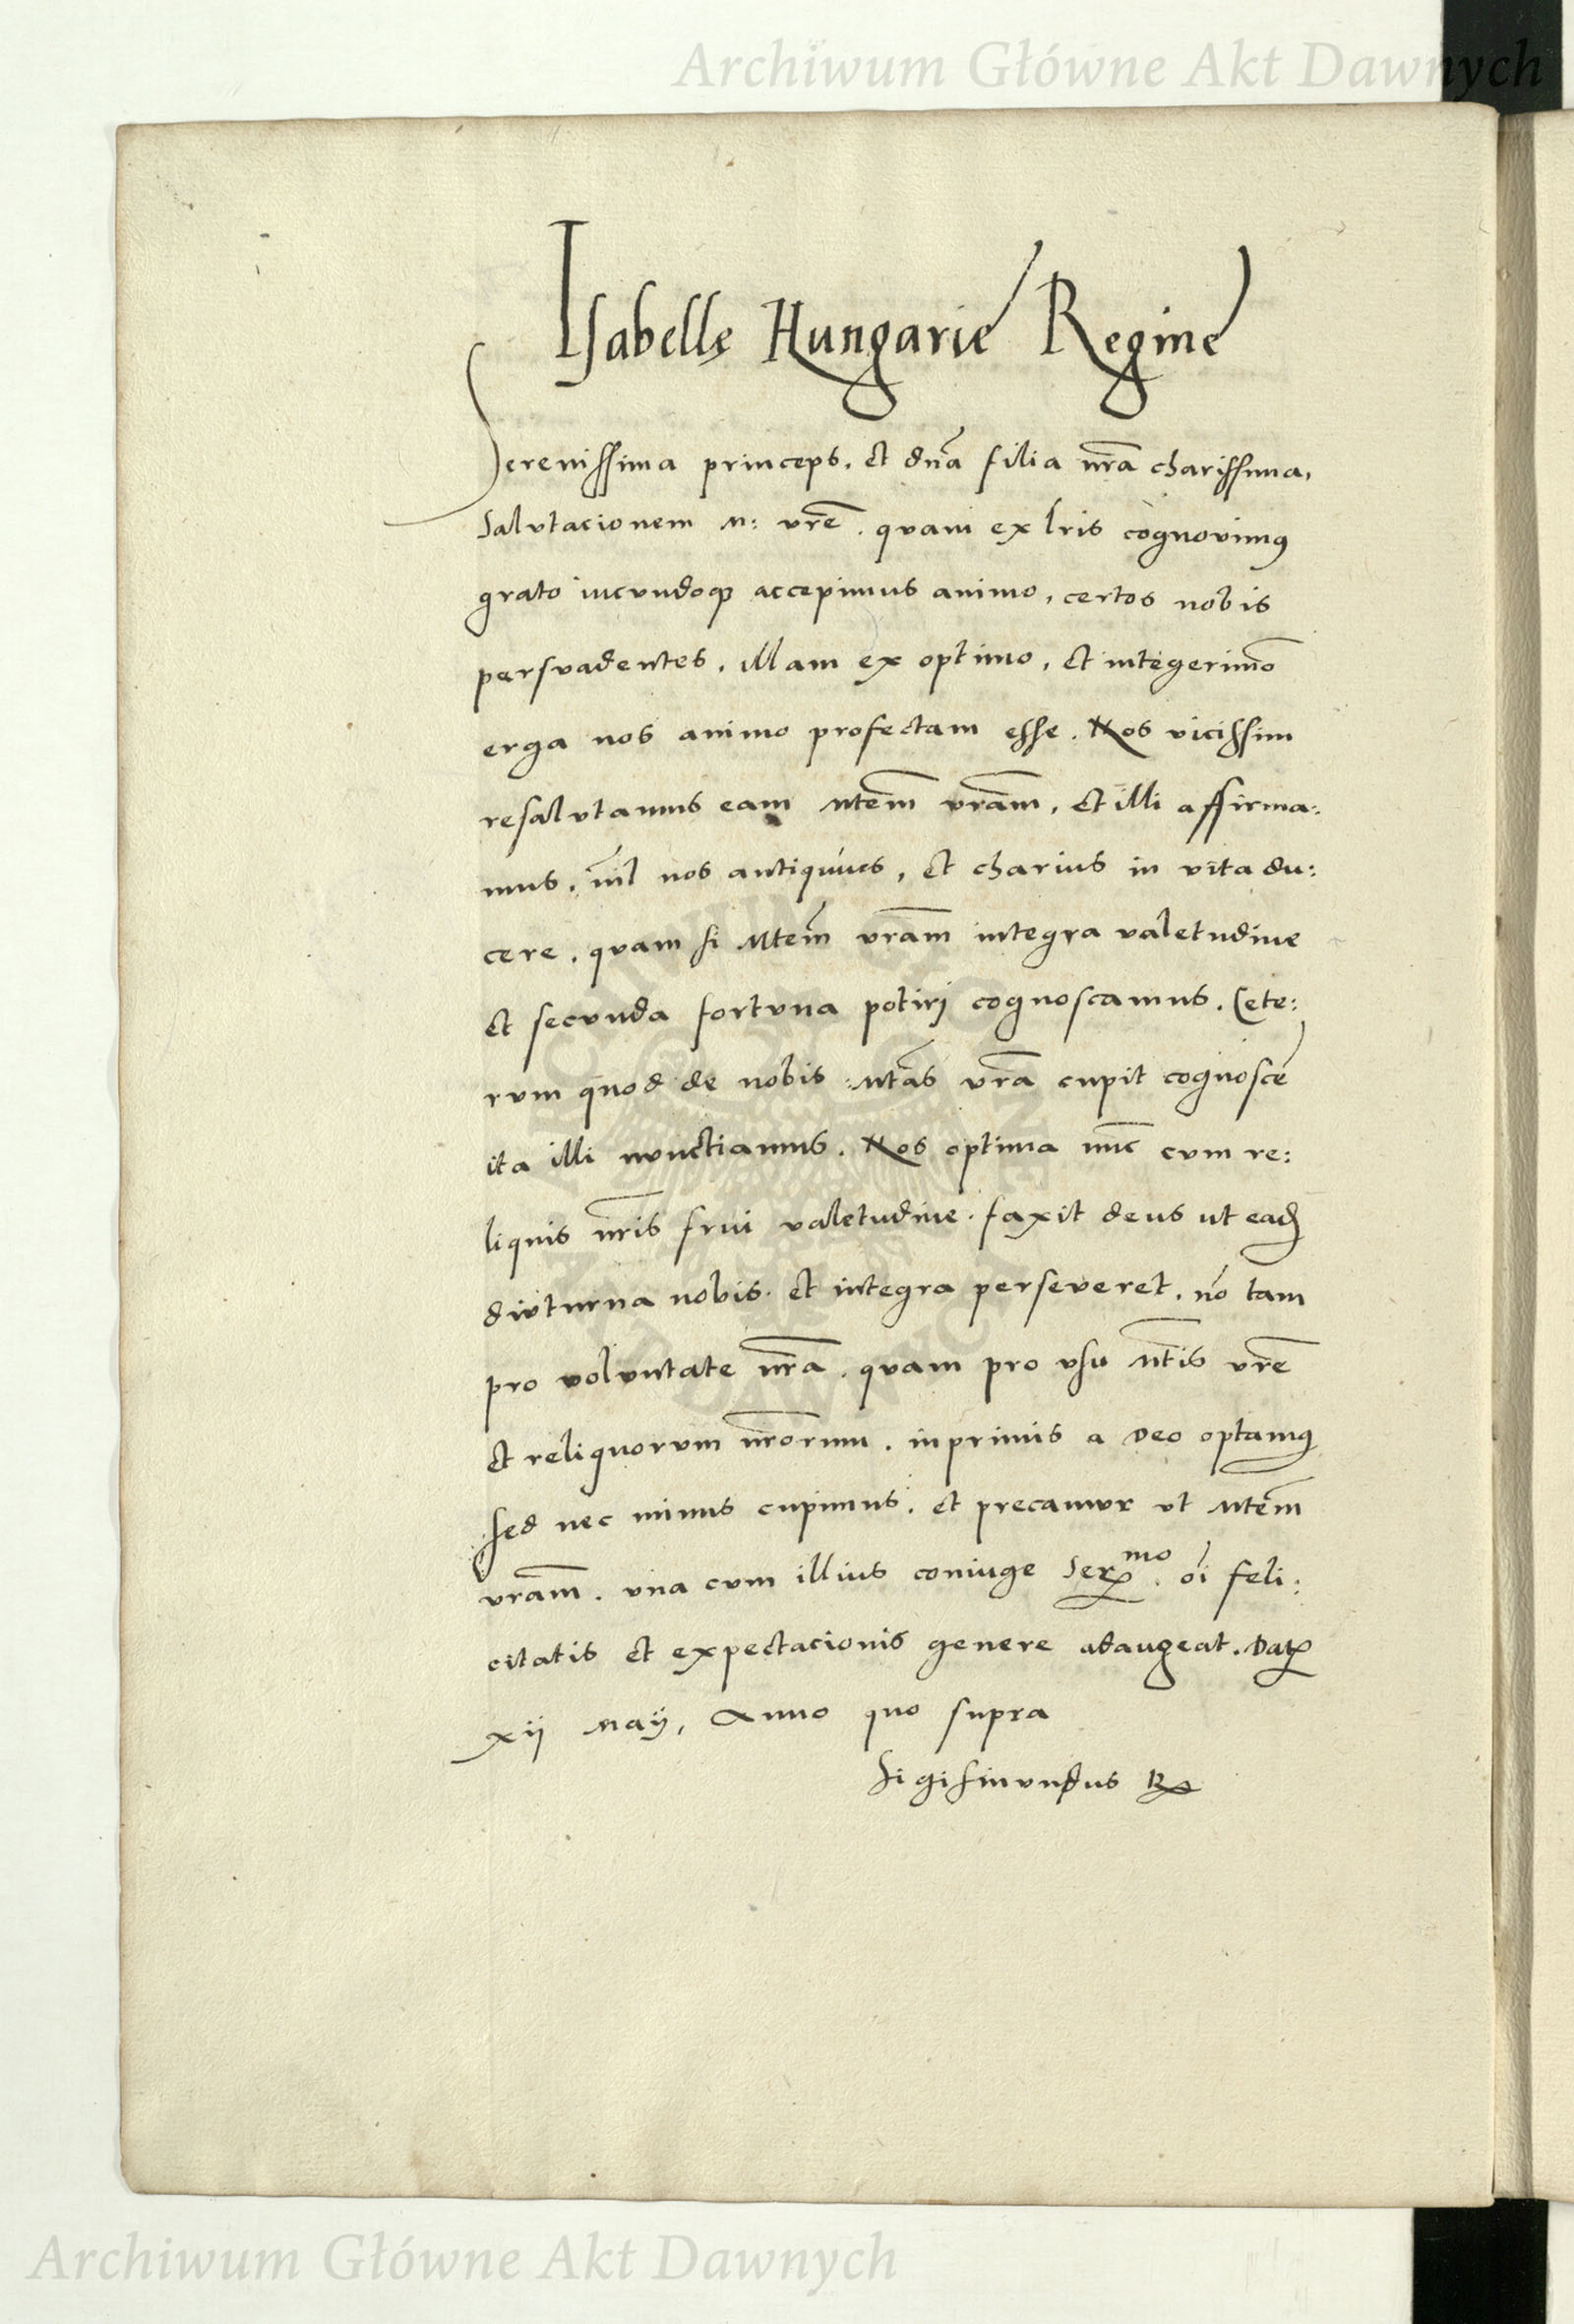 Archiwum Główne Akt Dawnych
Isabellę Hungarie Regine
Serenissima princeps. et dnā filia nrā charissima,
Salutacionem M: vrē. quam ex lris cognovimus
grato iucundoque accepimus animo, certos nobis
persuadentes, illam ex optimo, et integerimo
erga nos animo profectam esse. Nos vicissim
resalutamus eam Mtem vram, et illi affirma:
mus, nil nos antiquius, et charius in vita du:
cere, quam si Mtem vram integra valetudine
et secunda fortuna potirj cognoscamus. Cete:
rum quod de nobis Mtas vra cupit cognosce
ita illi nunctiamus. Nos optima nuc cum re:
liquis nris frui valetudine. faxit deus ut ead
diuturna nobis et integra perseveret. nō tam
pro voluntate nra, quam pro usu Mtis vre
et reliquorum nrorum. inprimis a Deo optamus
sed nec minus cupimus. et precamur ut Mtem
vram. una cum illius coniuge Ser mo. oi feli:
citatis et expectacionis genere adaugeat. Dat
xij Maij, Anno quo supra
Sigismundus Rx
Archiwum Główne Akt Dawnych